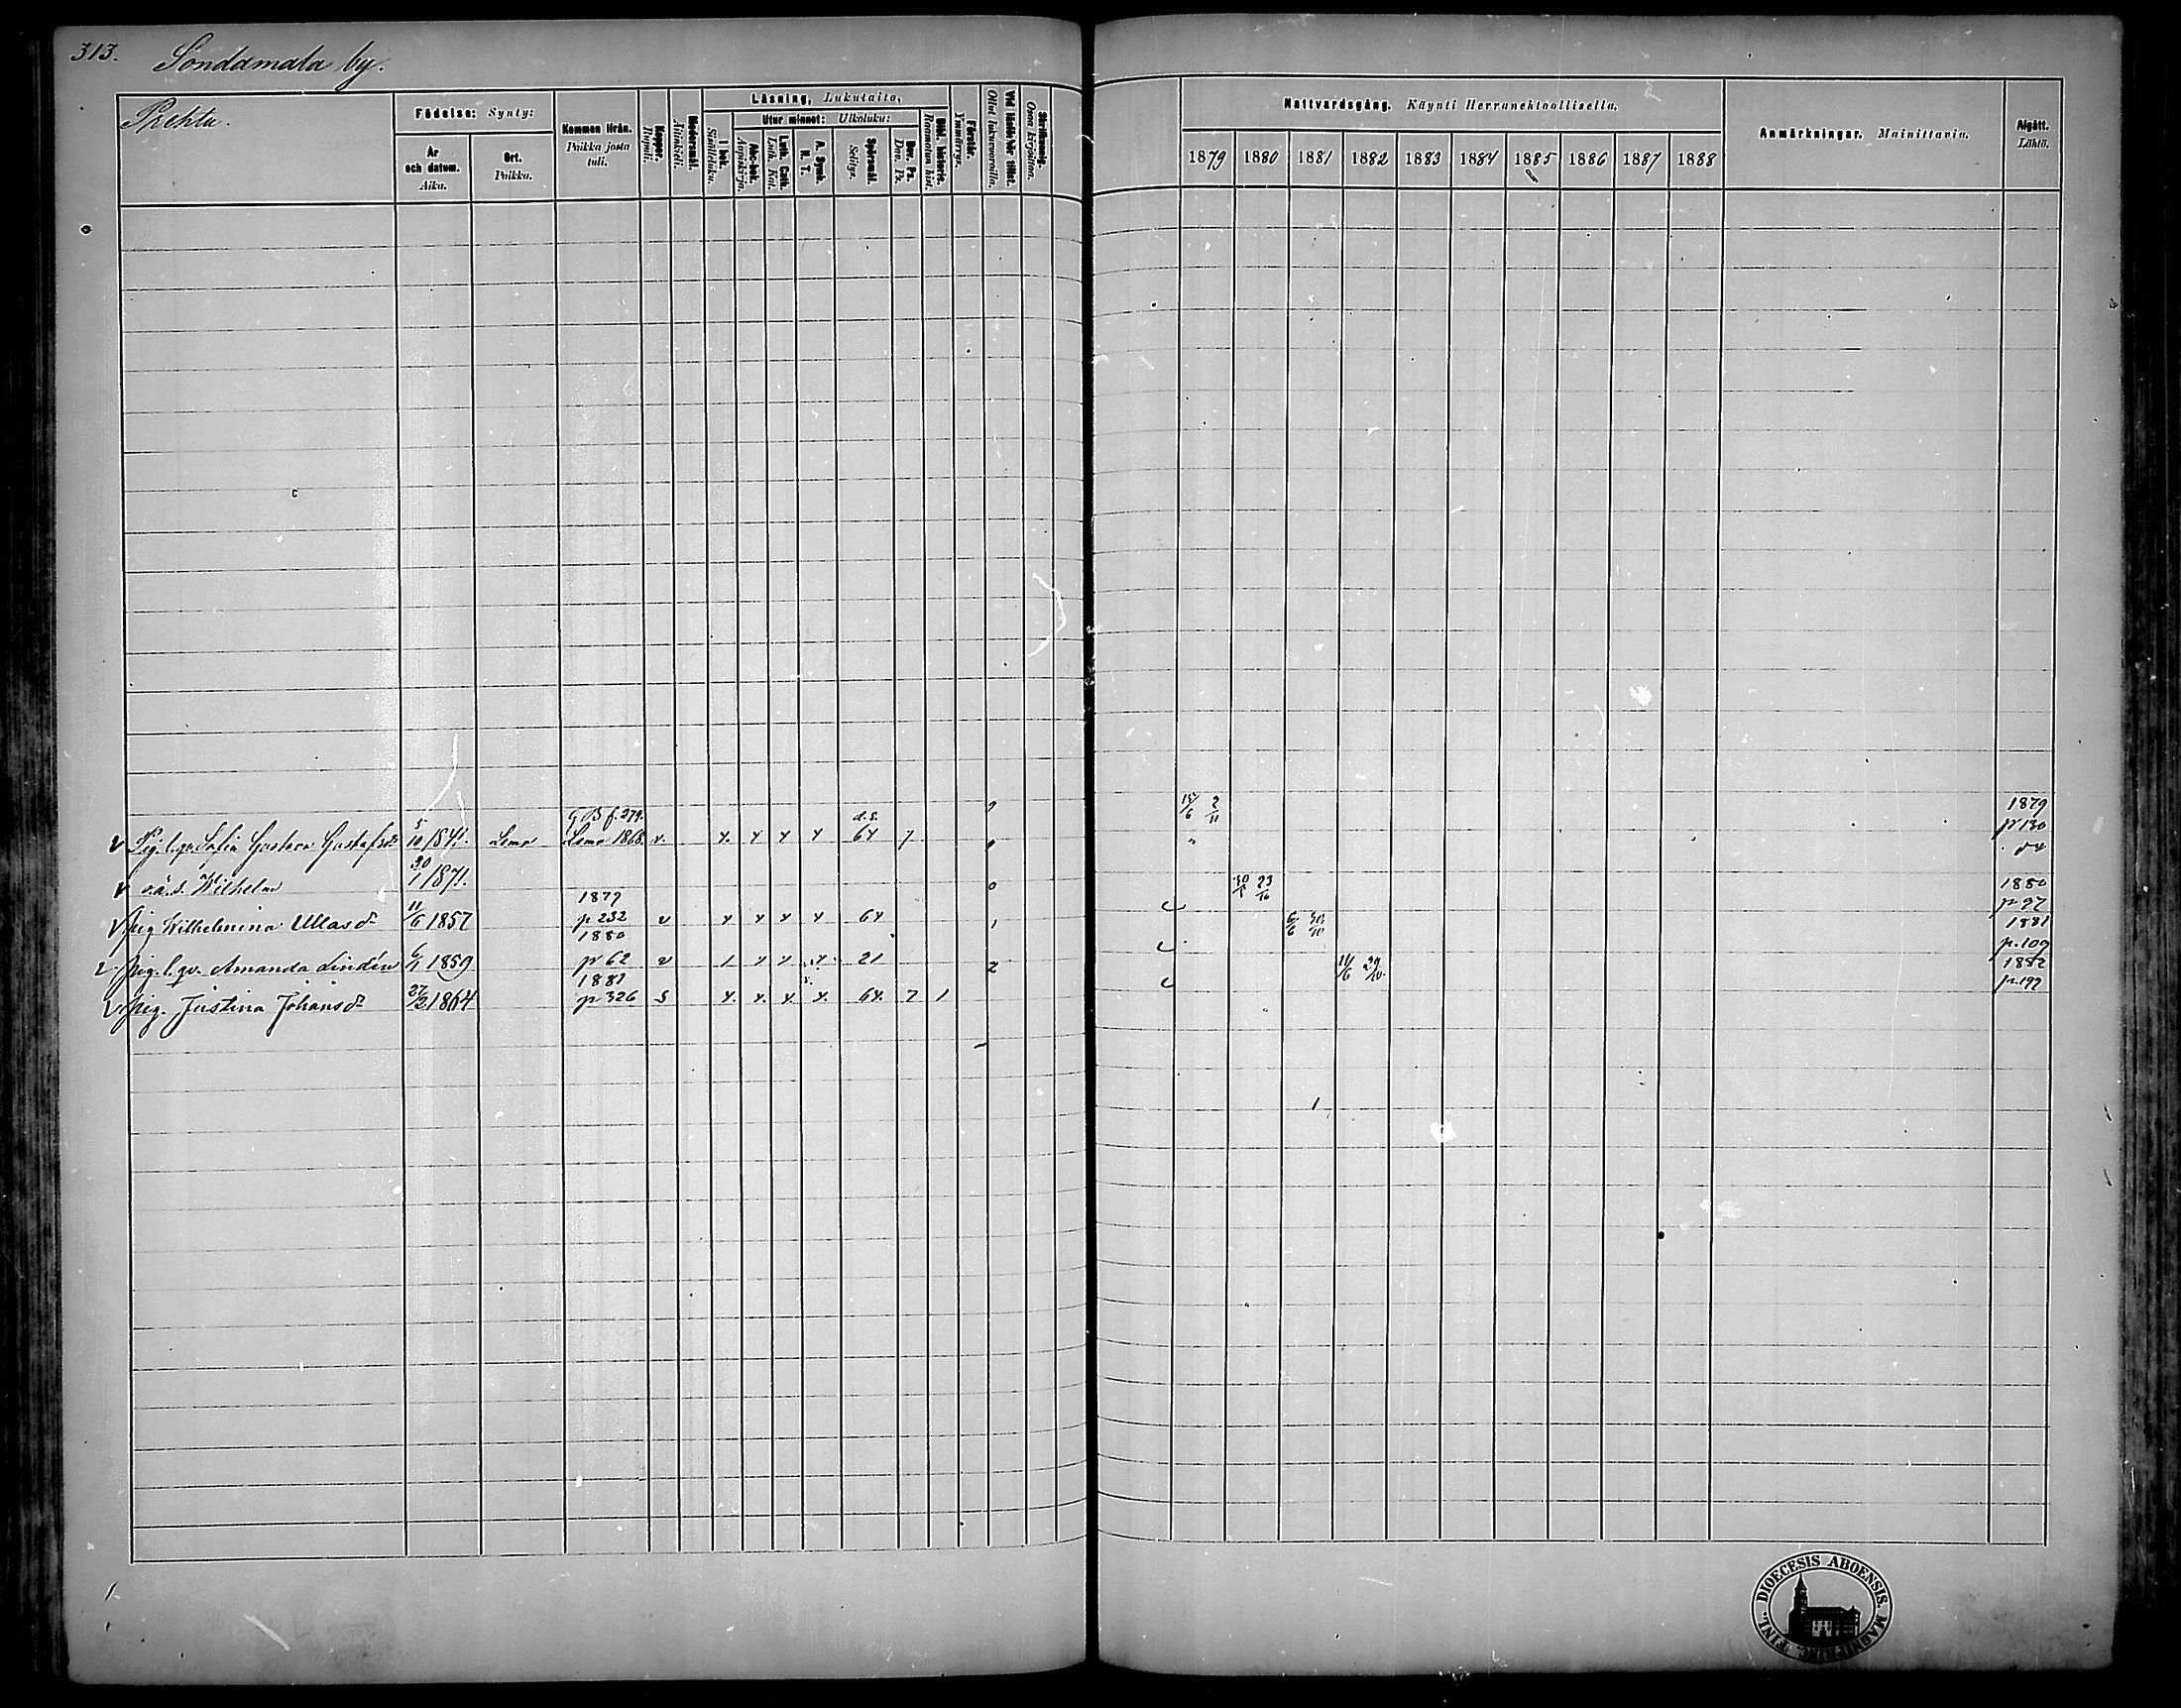 313. Sondamala by.
Prehtu.
Födelse: Synty:
År och datum. Aika.
Ort. Paikka.
Kommen ifrån. Paikka josta tuli.
Koppor. Rupuli.
Modersmål. Äitinkieli.
Läsning, Lukutaito,
I bok. Sisältäluku.
Utur minnet: Ulkoluku:
Abc-bok. Aapiskirja.
Luth. Cath. Luth. Kat.
A. Symb. H. T.
Spörsmål. Selitys.
Dav. Ps. Dav. Ps.
Bibl. historie. Raamatun hist.
Förstår. Ymmärrys.
Vid läseförhör tillst. Ollut lukuvuoroilla.
Skrifkunnig. Osaa kirjoittaa.
Nattvardsgång. Käynti Herranehtoollisella.
1879 1880 1881 1882 1883 1884 1885 1886 1887 1888
Anmärkningar. Mainittavia.
Afgått. Lähtö.
G B f. 279. d. s. 15/6 2/11 1879
v Pig. l. qv. Sofia Gustava Gustafsdr 5/10 1841. Lemo Lemo 1868. v. 4. 4 4 4 64 7 p 130
v o. ä. s. Wilhelm 30/1 1871. 0 23/10 1880
1879 p 27
v Pig Wilhelmina Ullasdr 11/6 1857 p 232 v 4 4 4 4 64 1 6/6 30/10 1881
1880 p. 109
v Pig. l. qv. Amanda Lindén 6/1 1859 p 62 v 1 4 4 4 21 2 11/6 29/10 1882
1881 p. 197
v Pig. Justina Johansdr 27/2 1864 p 326 s 4. 4. 4. 4. 64. 7 1
DIOECESIS ABOENSIS. MAGNI PRINC. FINL.